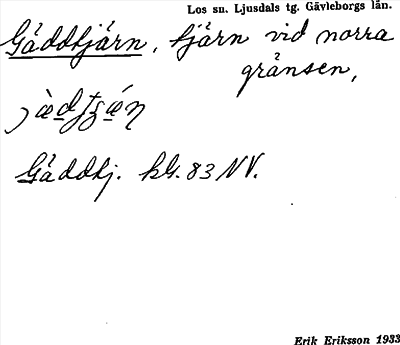 Los sn. Ljusdals tg. Gävleborgs län.
Gäddtjärn, tjärn vid norra
gränsen,
Gäddtj. bl. 83 NV.
Erik Eriksson 1933